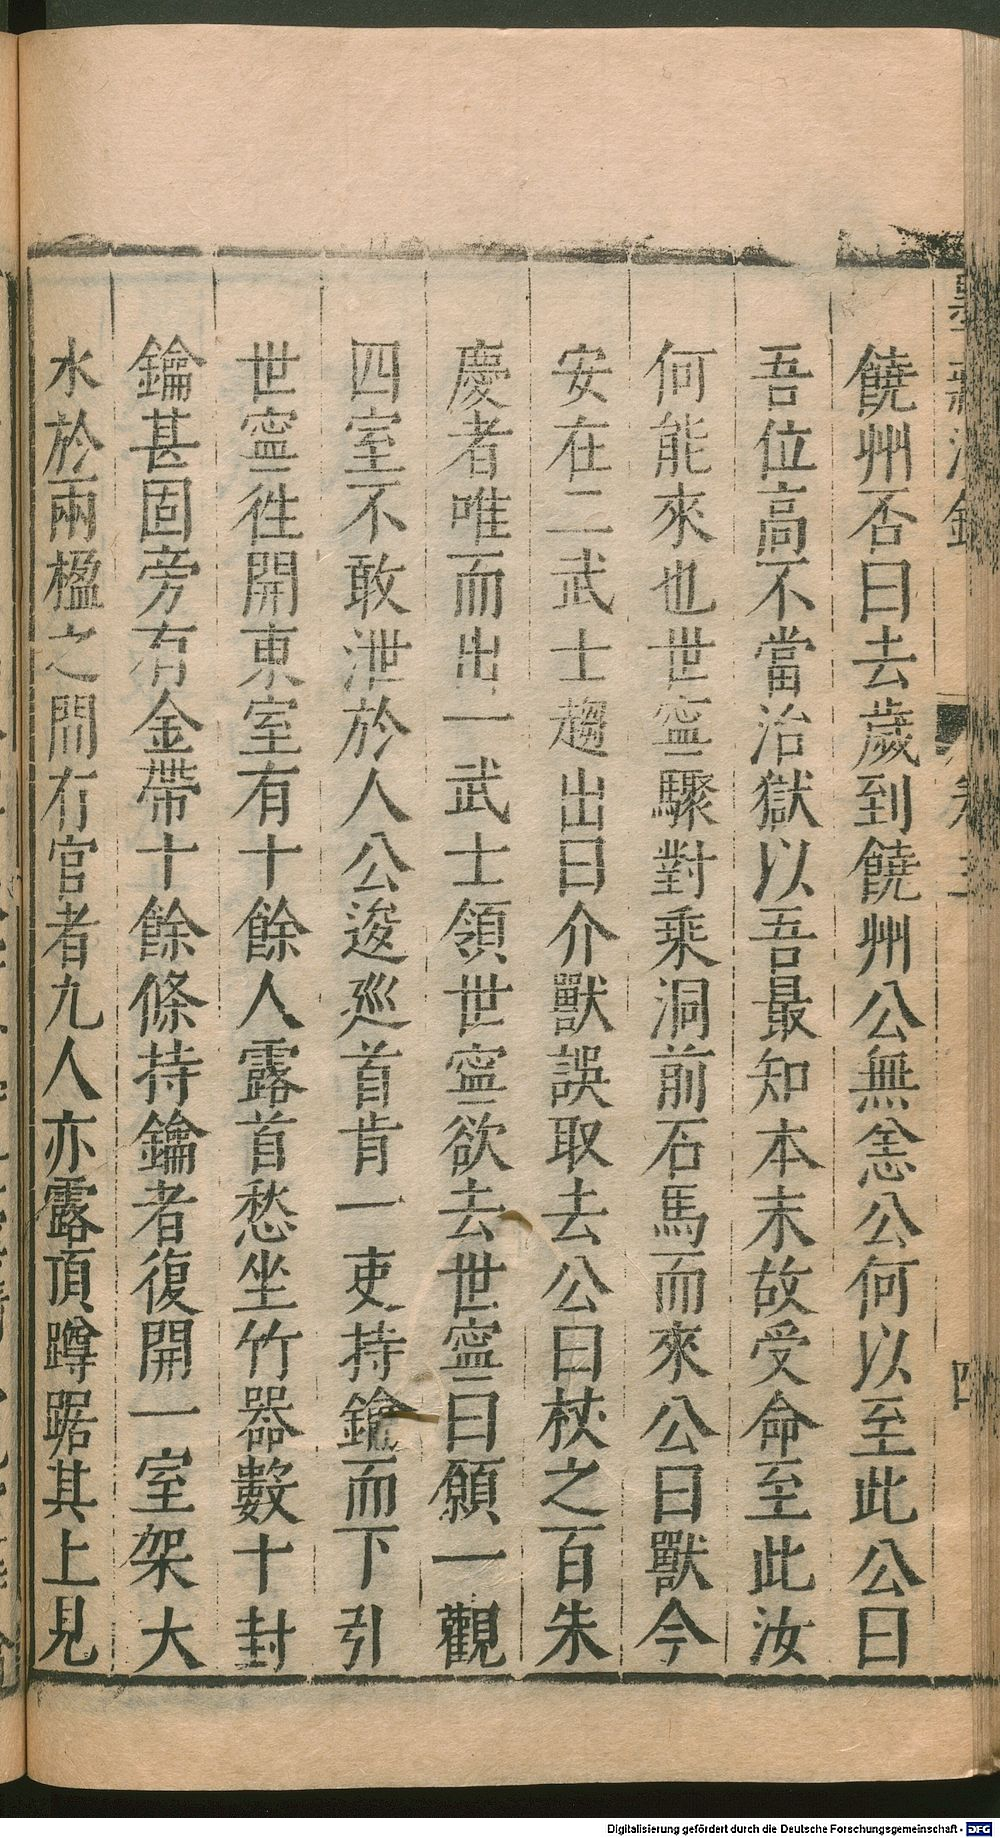 饒州否曰去歲到饒州公無恙公何以至此公曰
吾位高不當治獄以吾最知本末故受命至此汝
何能來也世寧驟對乘洞前石馬而來公曰獸今
安在二武士趨出曰介獸誤取去公曰杖之百朱
慶者唯而出一武士領世寧欲去世寧曰願一觀
四室不敢泄於人公逡巡首肯一吏持鑰而下引
世寧徃開東室有十餘人露首愁坐竹器數十封
鑰甚固旁有金帶十餘條持鑰者復開一室架大
水於兩楹之間有官者九人亦露頂蹲踞其上見
Digitalisierung gefördert durch die Deutsche Forschungsgemeinschaft - DFG